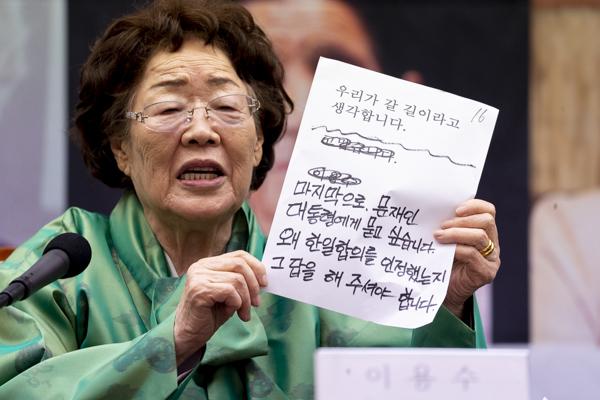 우리가 갈 길이라고
생각합니다.
16
마지막으로, 문재인
대통령에게 묻고 싶습니다.
왜 한일합의를 인정했는지
그 답을 해 주셔야 합니다.
이용수